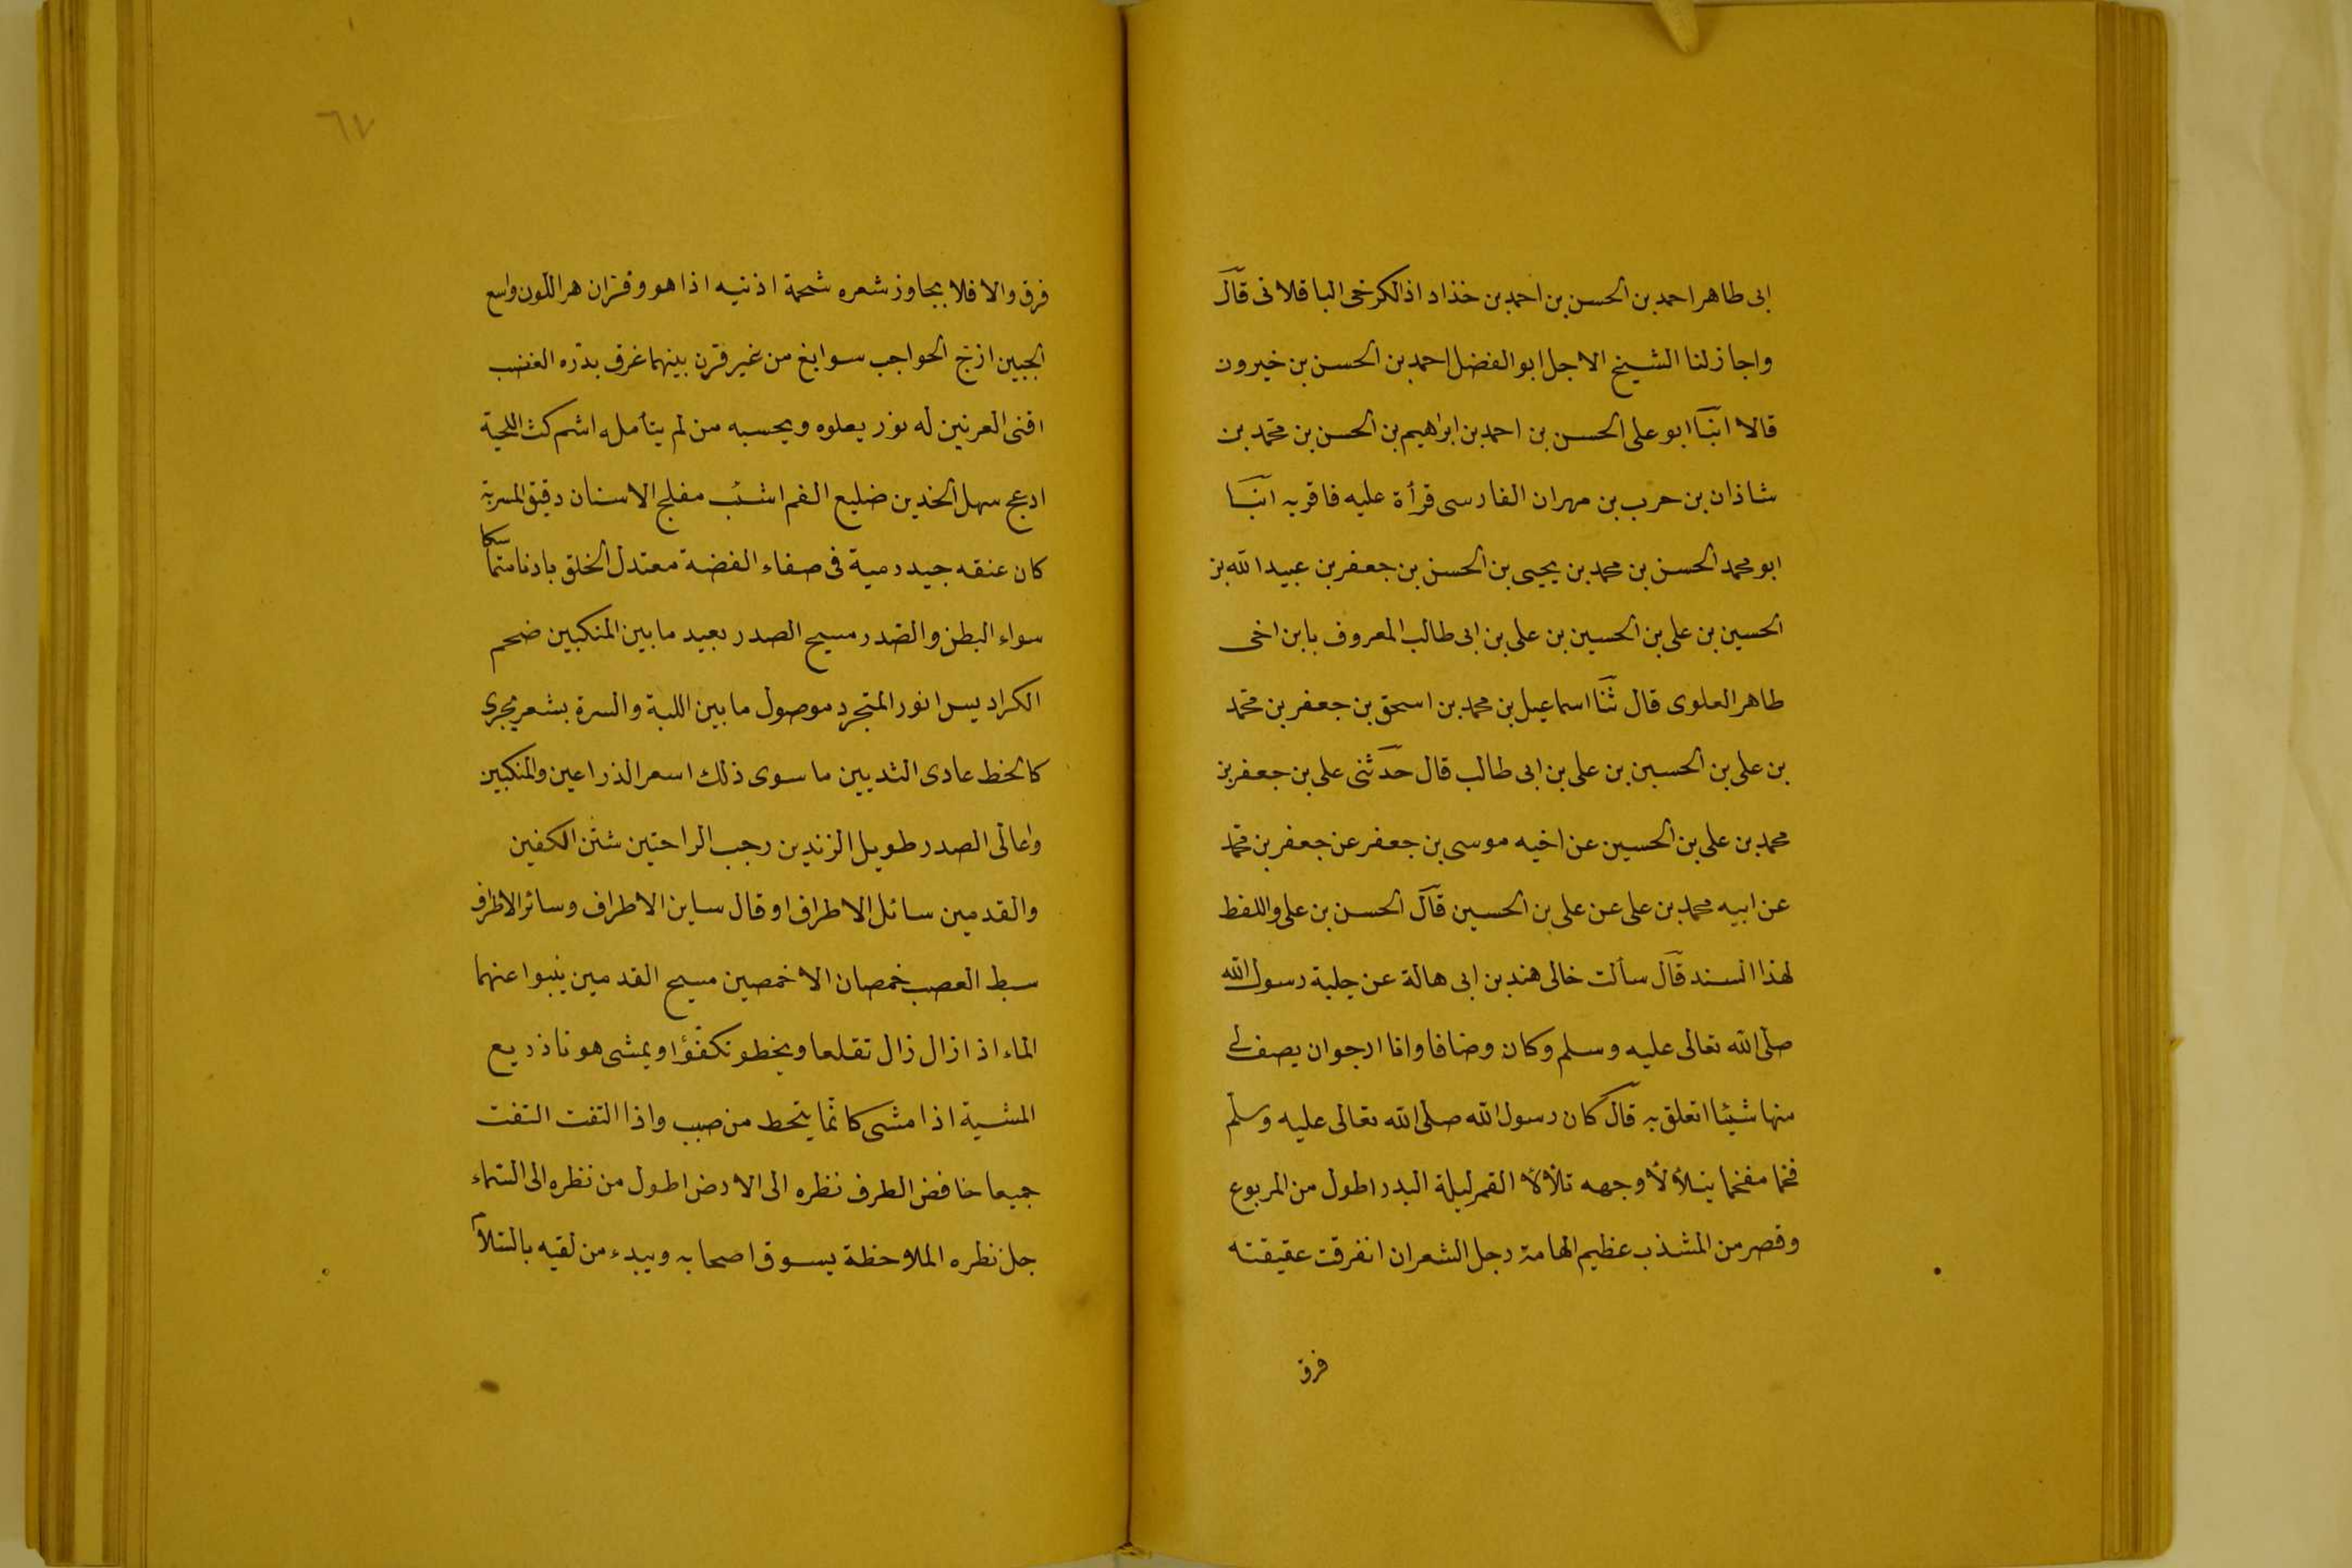 ابى طاهر احمد بن الحسن بن احمد بن خذاد اذ الكرخى الباقلانى قال
واجاز لنا الشيخ الاجل ابو الفضل احمد بن الحسن بن خيرون
قالا انبا ابو على الحسن بن احمد بن ابراهيم بن الحسن بن محمد بن
شاذان بن حرب بن مهران الفارسى قرأة عليه فاقربه انبا
ابو محمد الحسن بن محمد بن يحيى بن الحسن بن جعفر بن عبيد الله بن
الحسين بن على بن الحسين بن على بن ابى طالب المعروف بابن اخى
طاهر العلوى قال ثنا اسماعيل بن محمد بن اسحق بن جعفر بن محمد
بن على بن الحسين بن على بن ابى طالب قال حدثنى على بن جعفر بن
محمد بن على بن الحسين عن اخيه موسى بن جعفر عن جعفر بن محمد
عن ابيه محمد بن على عن على بن الحسين قال الحسن بن على واللفط
لهذا السند قال سألت خالى هند بن ابى هالة عن حلية رسول الله
صلى الله تعالى عليه وسلم وكان وضافا وانا ارجوان يصف لى
منها شيئا اتعلق به قال كان رسول الله صلى الله تعالى عليه وسلم
فخما مفخما يتلألأ وجهه تلألأ القمر ليلة البدر اطول من المربوع
وقصر من المشذب عظيم الهامة رجل الشعر ان انفرقت عقيقته
فرق
٦٧
فرق والا فلا يجاوز شعره شحمة اذنيه اذا هو وفر ان هر اللون واسع
الجبين ازج الحواجب سوابغ من غير قرن بينهما غرق بدره الغضب
اقنى العرنين له نور يعلوه ويحسبه من لم يتأمله اشم كث اللحية
ادعج سهل الخدين ضليع الفم اشنب مفلج الاسنان دقيق المسربة
كان عنقه جيد دمية فى صفاء الفضة معتدل الخلق بادنا متماسكا
سواء البطن والصدر مسيح الصدر بعيد ما بين المنكبين ضخم
الكراديس انور المتجرد موصول ما بين اللبة والسرة بشعر يجرى
كالخط عادى الثديين ما سوى ذلك اسعر الذراعين والمنكبين
واعالى الصدر طويل الزندين رجب الراحتين شثن الكفين
والقدمين سائل الاطراف او قال ساين الاطراف وسائر الاطراف
سبط العصب خمصان الاخمصين مسيح القدمين ينبوا عنهما
الماء اذا زال زال تقلعا ويخطو تكفؤا ويمشى هونا ذريع
المشية اذا مشى كانما يتحط من صبب واذا التفت التفت
جميعا خافض الطرف نظره الى الارض اطول من نظره الى السماء
جل نظره الملاحظة يسوق اصحابه ويبدء من لقيه بالسلام